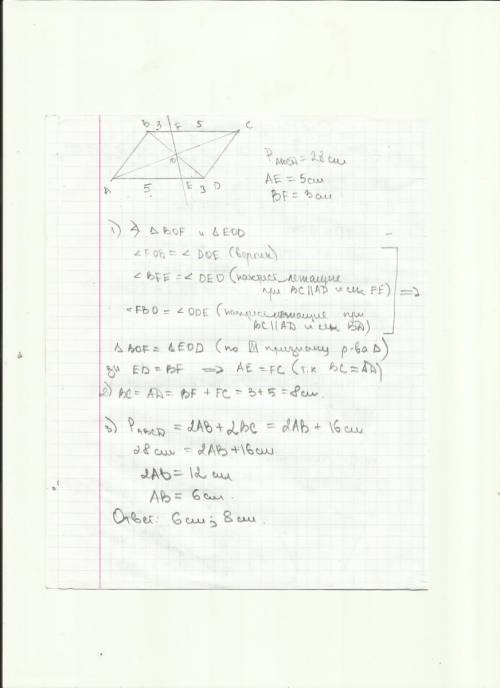 B 3 F 5 C
O
A 5 E 3 D
PABCD = 28 см
AE = 5 см
BF = 3 см
1) ∆ BOF и ∆ EOD
∠FOB = ∠DOE (вертик)
∠BFE = ∠DEO (накрест лежащие
при BC∥AD и сек FE) =>
∠FBO = ∠ODE (накрест лежащие при
BC∥AD и сек BD)
∆ BOF = ∆EOD (по признаку р-ва ∆)
ED = BF => AE = FC (т.к BC = AD)
2) BC = AD = BF + FC = 3+5 = 8 см.
3) PABCD = 2AB + 2BC = 2AB + 16 см
28 см = 2AB + 16 см
2AB = 12 см
AB = 6 см.
Ответ: 6 см; 8 см.